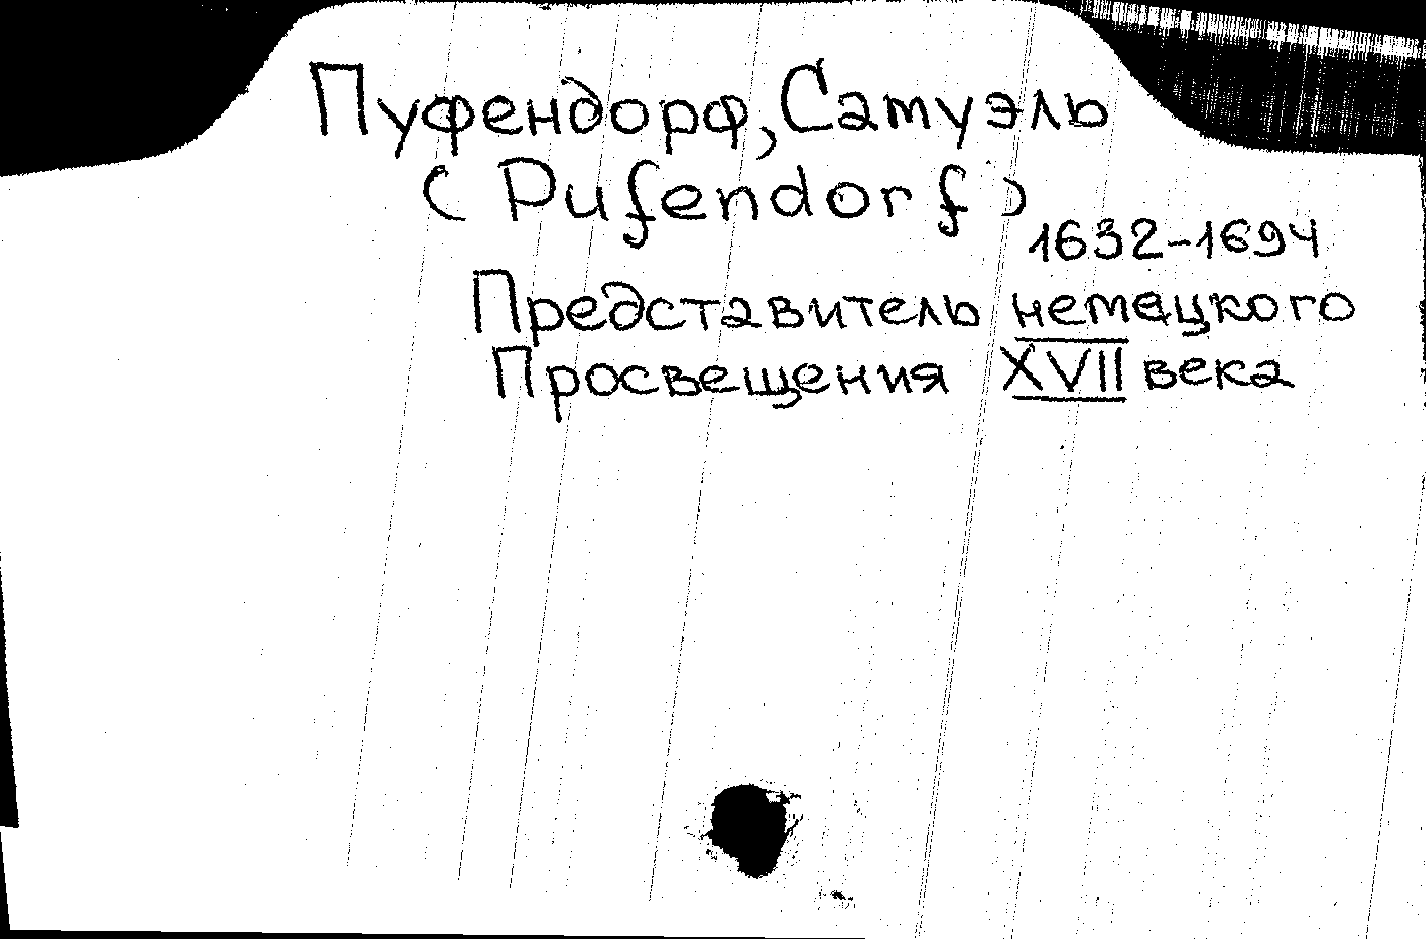 Пуфендорф, Самуэль
(Pufendorf)
1632-1694
Представитель немецкого
Просвещения XVII века